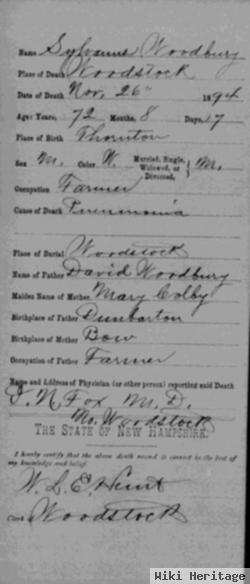 Name Sylvanus Woodbury
Place of Death Woodstock
Date of Death Nov. 26" 1894
Age: Years, 72 Months, 8 Days, 17
Place of Birth Thornton
Sex M. Color W. Married, Single, Widowed, or Divorced, } M.
Occupation Farmer
Cause of Death Pneumonia
Place of Burial Woodstock
Name of Father David Woodbury
Maiden Name of Mother Mary Colby
Birthplace of Father Dunbarton
Birthplace of Mother Bow
Occupation of Father Farmer
Name and Address of Physician (or other person) reporting said Death
N Fox M. D.
No. Woodstock
THE STATE OF NEW HAMPSHIRE.
I hereby certify that the above death record is correct to the best of
my knowledge and belief.
W. L. E. Hunt
Clerk Woodstock
Wiki Heritage